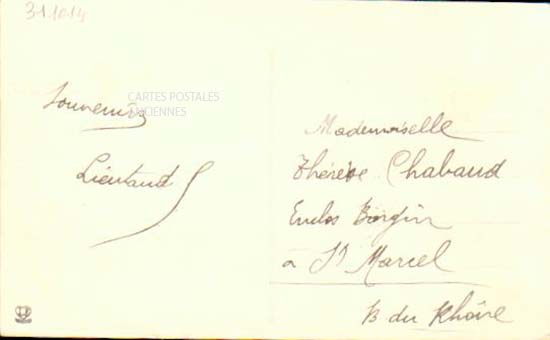 31.10.14
Souvenirs
CARTES POSTALES
ANCIENNES
Lieutaud
Mademoiselle
Thérèse Chabaud
Enclos
à St Marcel
B du Rhône